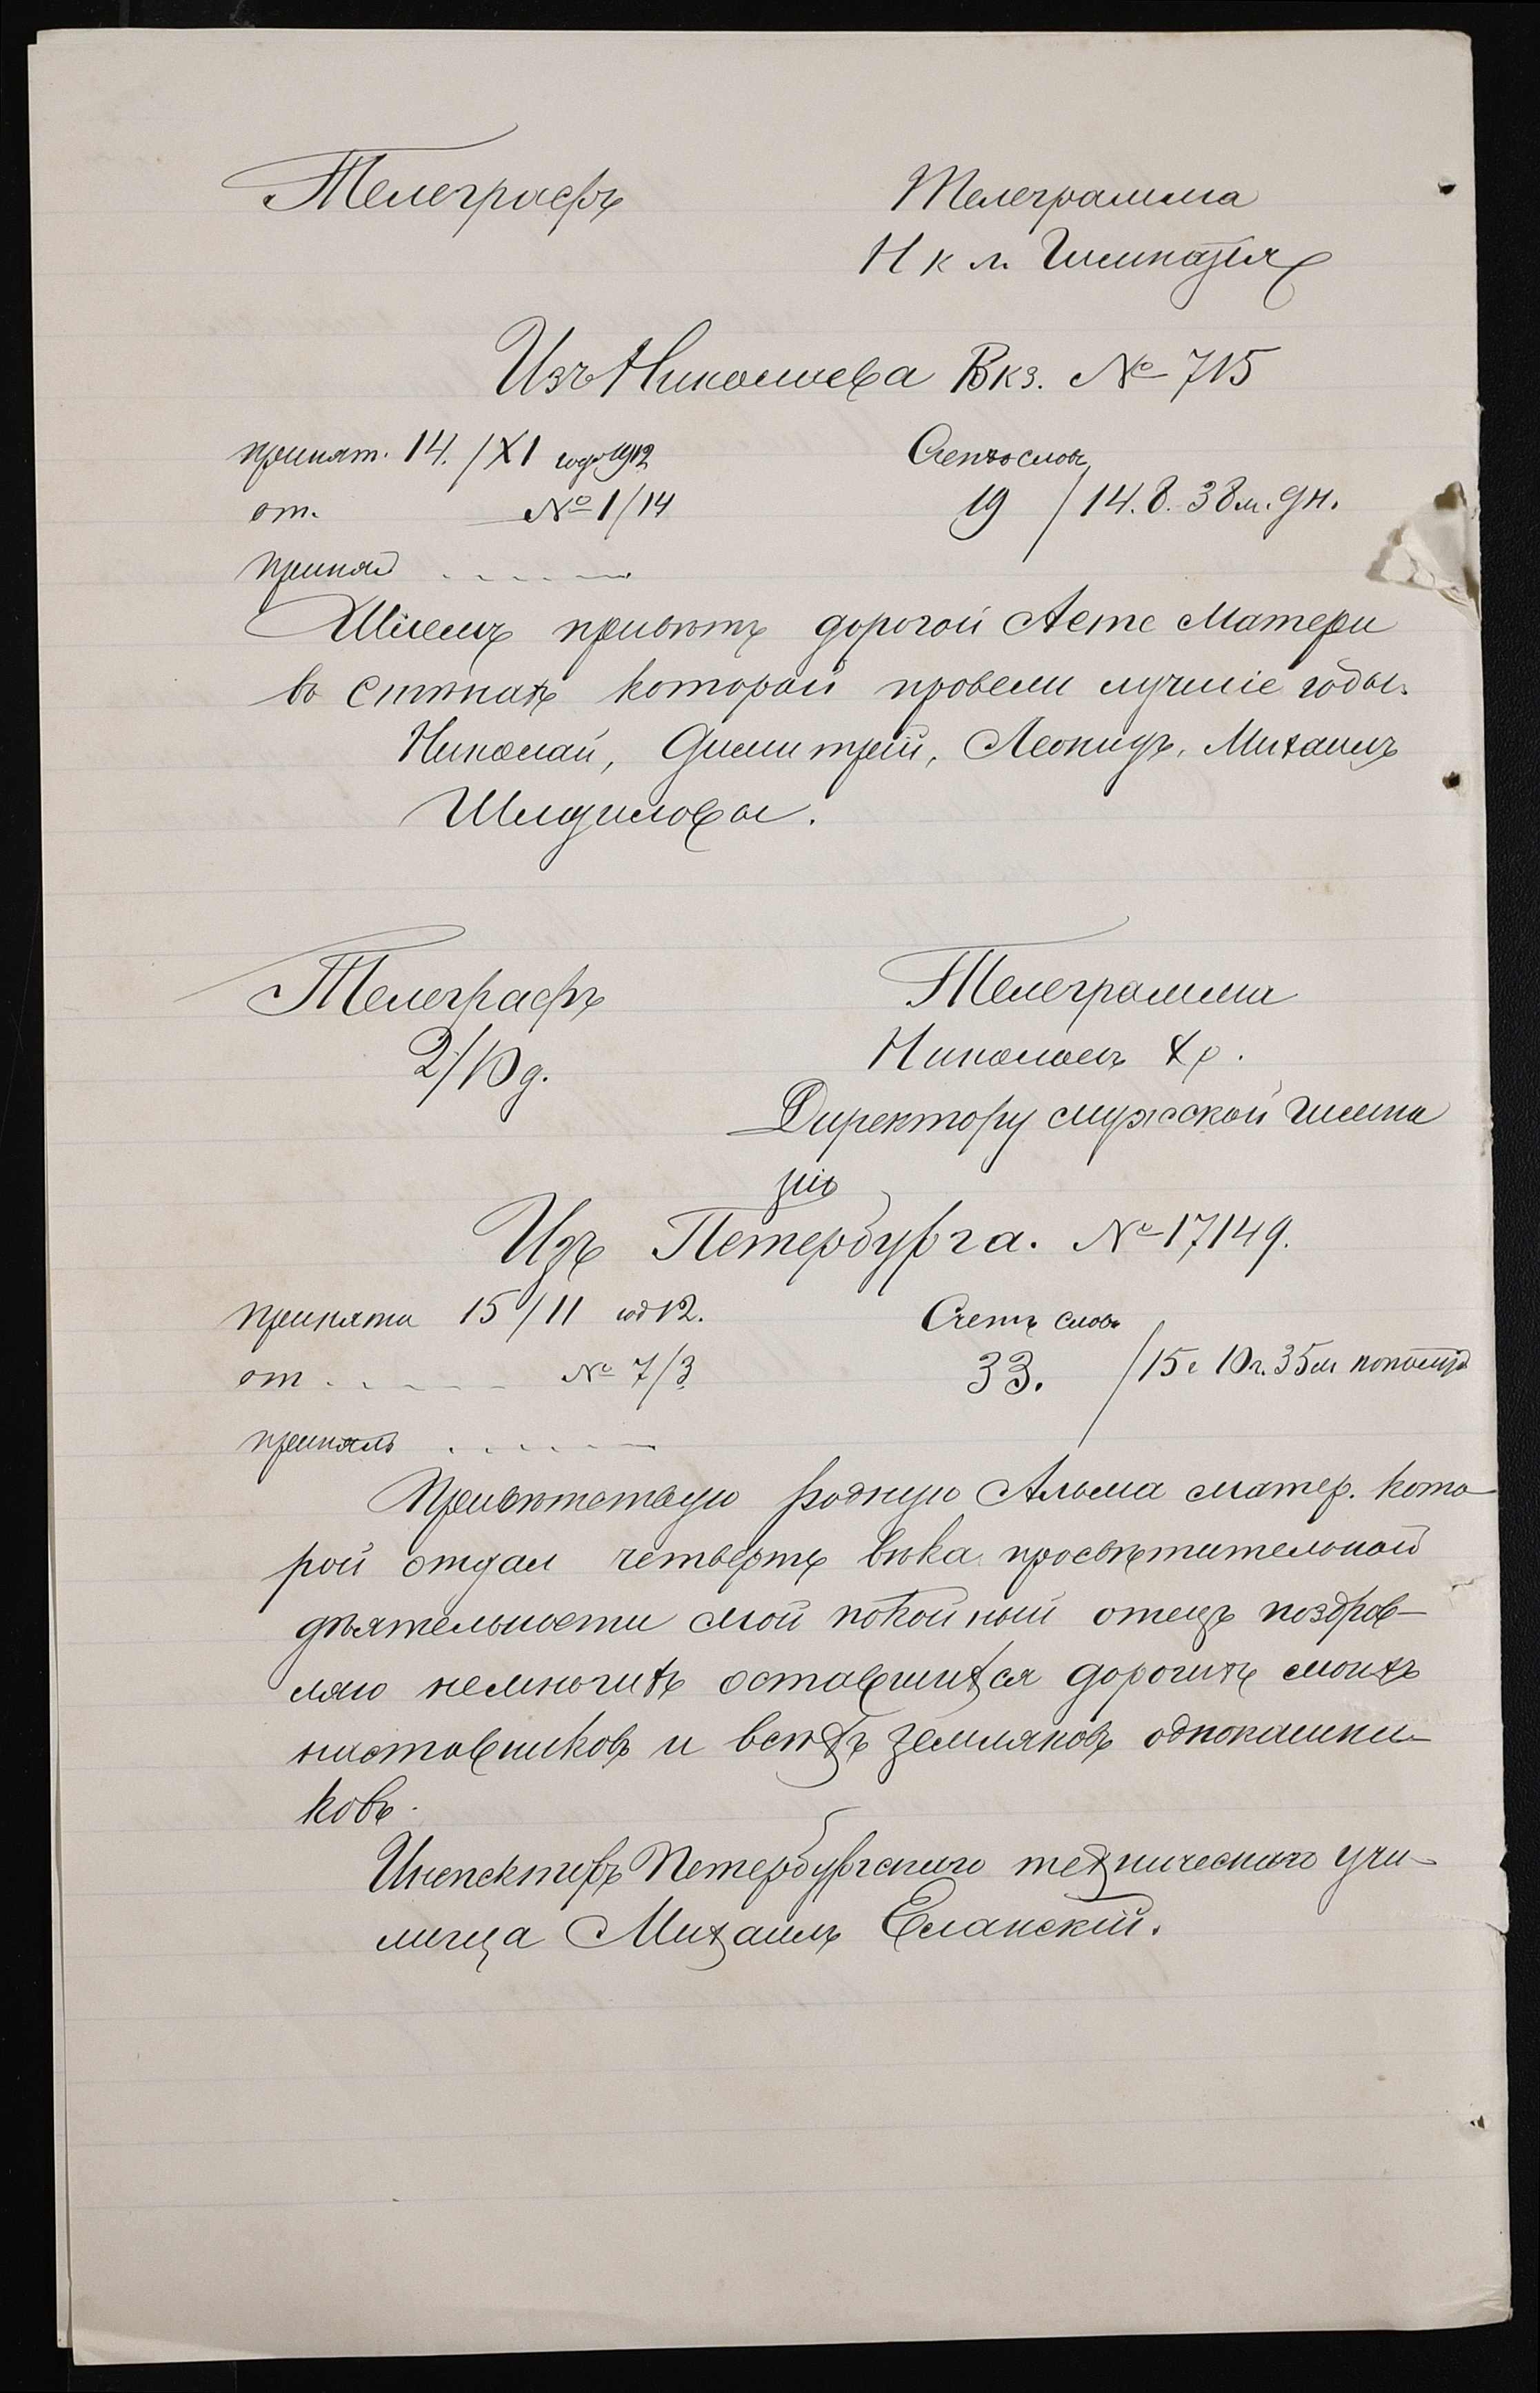 Телеграфъ
Телеграмма
Н к л. Гимназія
Изъ Николаева Вкз. № 715
принят. 14. / XI года 1912
Счетъ словъ
от. № 1/14
19 / 14. 8. 38 м. дн.
принял
Шлемъ привѣтъ дорогой Матери
въ стѣнахъ которой провели лучшіе годы.
Николай, Димитрій, Леонидъ, Михаилъ
Телеграфъ
2/10 д.
Телеграмма
Николаевъ Хр.
Директору мужской гимна
зіи
Изъ Петербурга. № 17149.
Принята 15/11 год 12.
Счетъ словъ
от № 7/3
33. / 15 10 ч. 35 м пополуд
принялъ
Привѣтствую родную Альма матер. кото
рой отдал четверть вѣка просвѣтительной
дѣятельности мой покойный отецъ поздрав-
ляю немногихъ оставшихся дорогихъ моихъ
наставниковъ и всѣхъ земляковъ однокашни-
ковъ.
Инспекторъ Петербургскаго техническаго учи-
лища Михаилъ Еланскій.